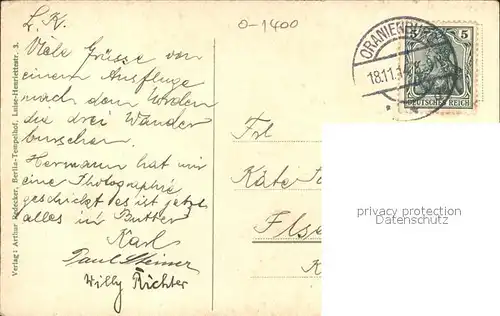 o-1400
L. K.
Viele Grüsse von
einem Ausfluge
nach dem Norden
die drei Wander
burschen.
Hermann hat mir
eine Photographie
geschickt es ist jetzt
alles in Butter
Karl
Paul Steiner
Willy Richter
Verlag: Arthur Redecker, Berlin-Tempelhof, Luise-Henriettestr. 3.
ORANIENBURG
18.11.1
5
DEUTSCHES REICH
Frl
Käte
privacy protection
Datenschutz